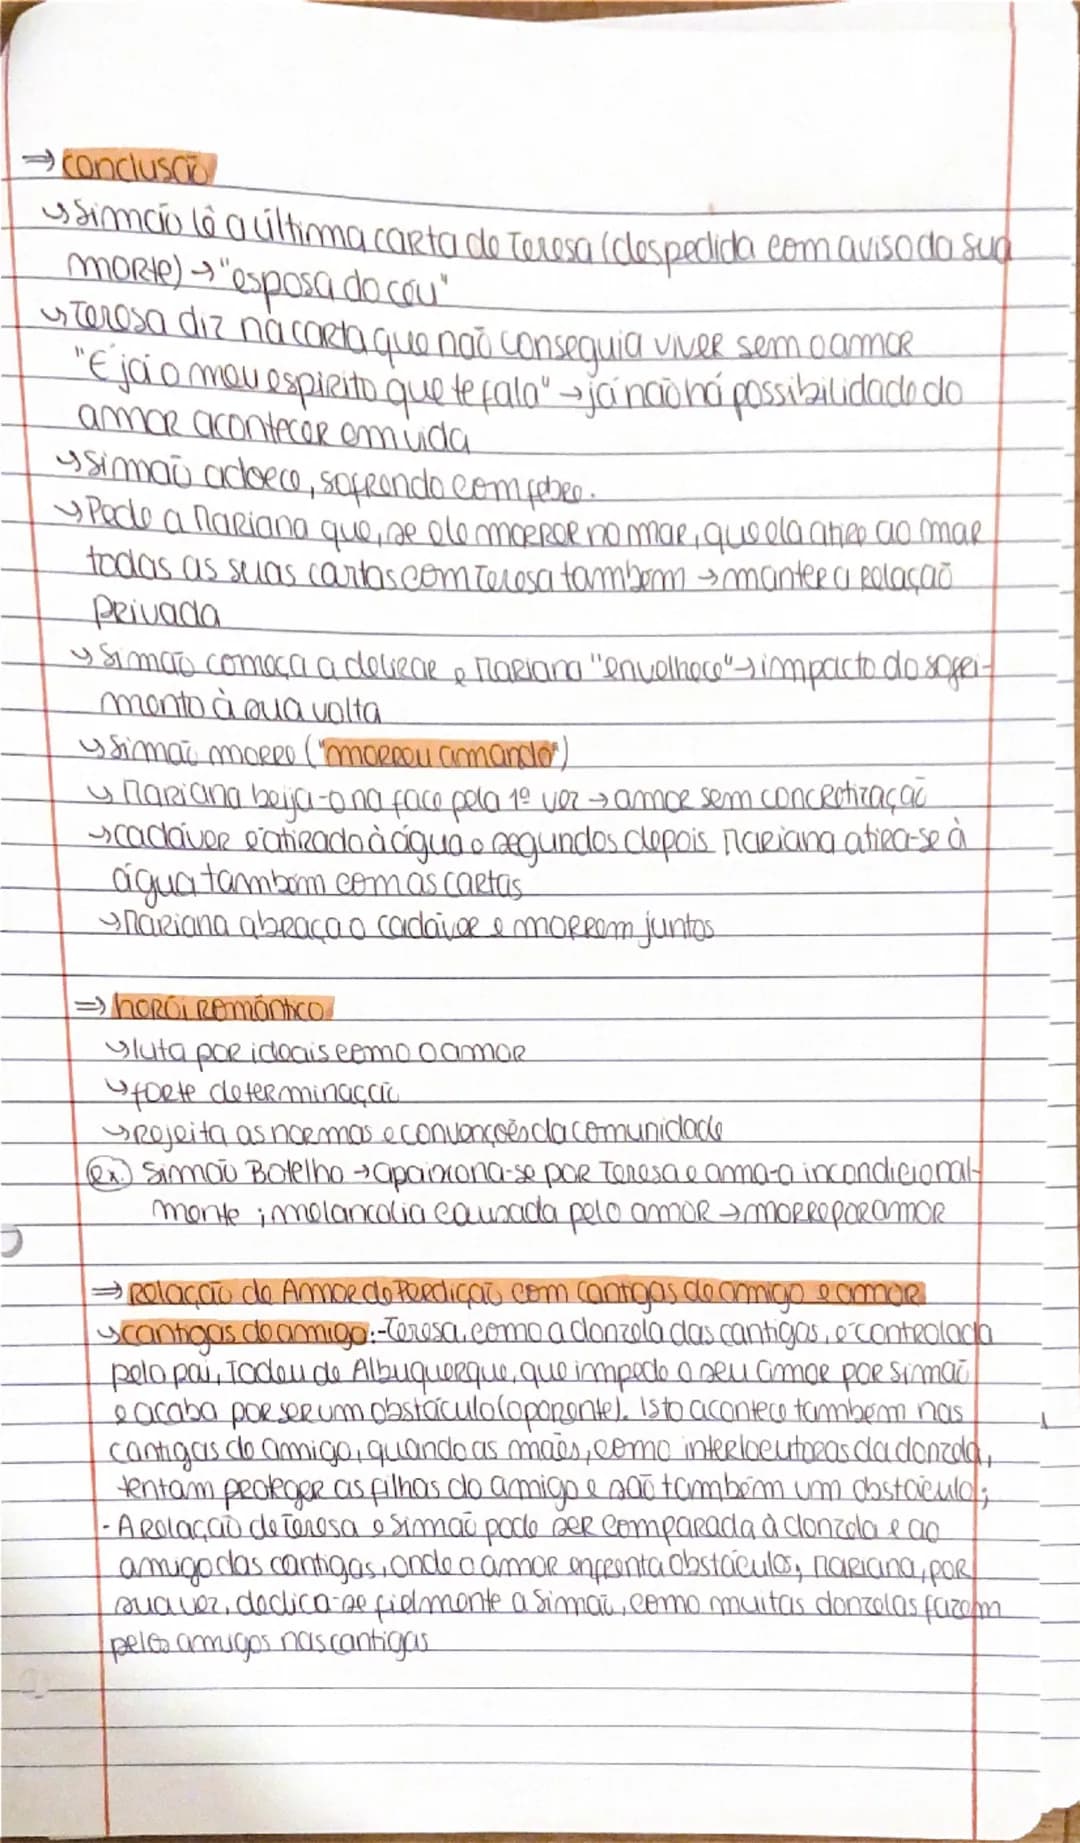 ⇒ conclusão
↳ Simão lê a última carta de Teresa (despedida com aviso da sua
morte) → "esposa do céu"
↳ Teresa diz na carta que não conseguia viver sem o amor
"É já o meu espírito que te fala" → já não há possibilidade do
amor acontecer em vida
↳ Simão adoece, sofrendo com febre.
↳ Pede a Mariana que, se ele morrer no mar, que ela atire ao mar
todas as suas cartas com Teresa também → manter a relação
privada
↳ Simão começa a delirar e Mariana "envelhece" → impacto do sofri-
mento à sua volta
↳ Simão morre ("morreu amando")
↳ Mariana beija-o na face pela 1ª vez → amor sem concretização
→ cadáver é atirado à água e segundos depois Mariana atira-se à
água também com as cartas
→ Mariana abraça o cadáver e morrem juntos
⇒ herói romântico
↳ luta por ideais como o amor
↳ forte determinação
↳ Rejeita as normas e convenções da comunidade
(ex.) Simão Botelho → apaixona-se por Teresa e ama-a incondicional-
mente ; melancolia causada pelo amor → morre por amor
⇒ Relação de Amor de Perdição com Cantigas de amigo e amor
↳ cantigas de amigo: - Teresa, como a donzela das cantigas, é controlada
pelo pai, Tadeu de Albuquerque, que impede o seu amor por Simão
e acaba por ser um obstáculo (oponente). Isto acontece também nas
cantigas de amigo, quando as mães, como interlocutoras da donzela,
tentam proteger as filhas do amigo e são também um obstáculo;
- A Relação de Teresa e Simão pode ser comparada à donzela e ao
amigo das cantigas, onde o amor enfrenta obstáculos; Mariana, por
sua vez, dedica-se fielmente a Simão, como muitas donzelas fazem
pelos amigos nas cantigas